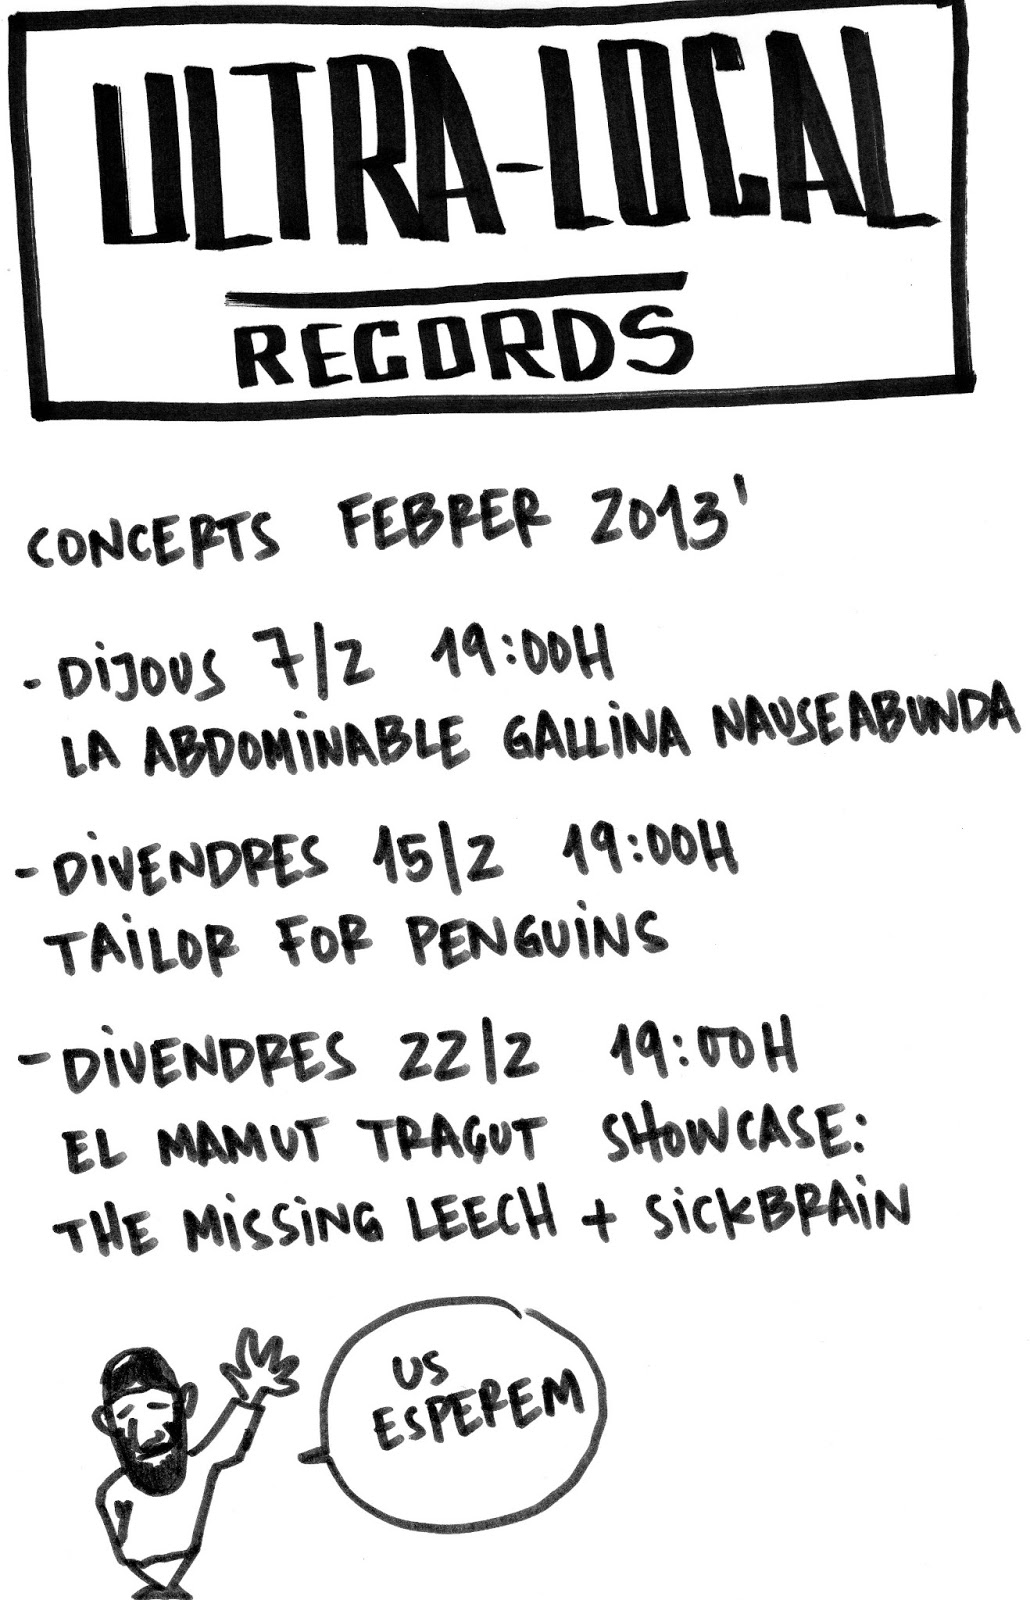 ULTRA-LOCAL
RECORDS
CONCERTS FEBRER 2013'
- DIJOUS 7/2 19:00H
LA ABDOMINABLE GALLINA NAUSEABUNDA
- DIVENDRES 15/2 19:00H
TAILOR FOR PENGUINS
- DIVENDRES 22/2 19:00H
EL MAMUT TRAÇUT SHOWCASE:
THE MISSING LEECH + SICKBRAIN
US
ESPEREM